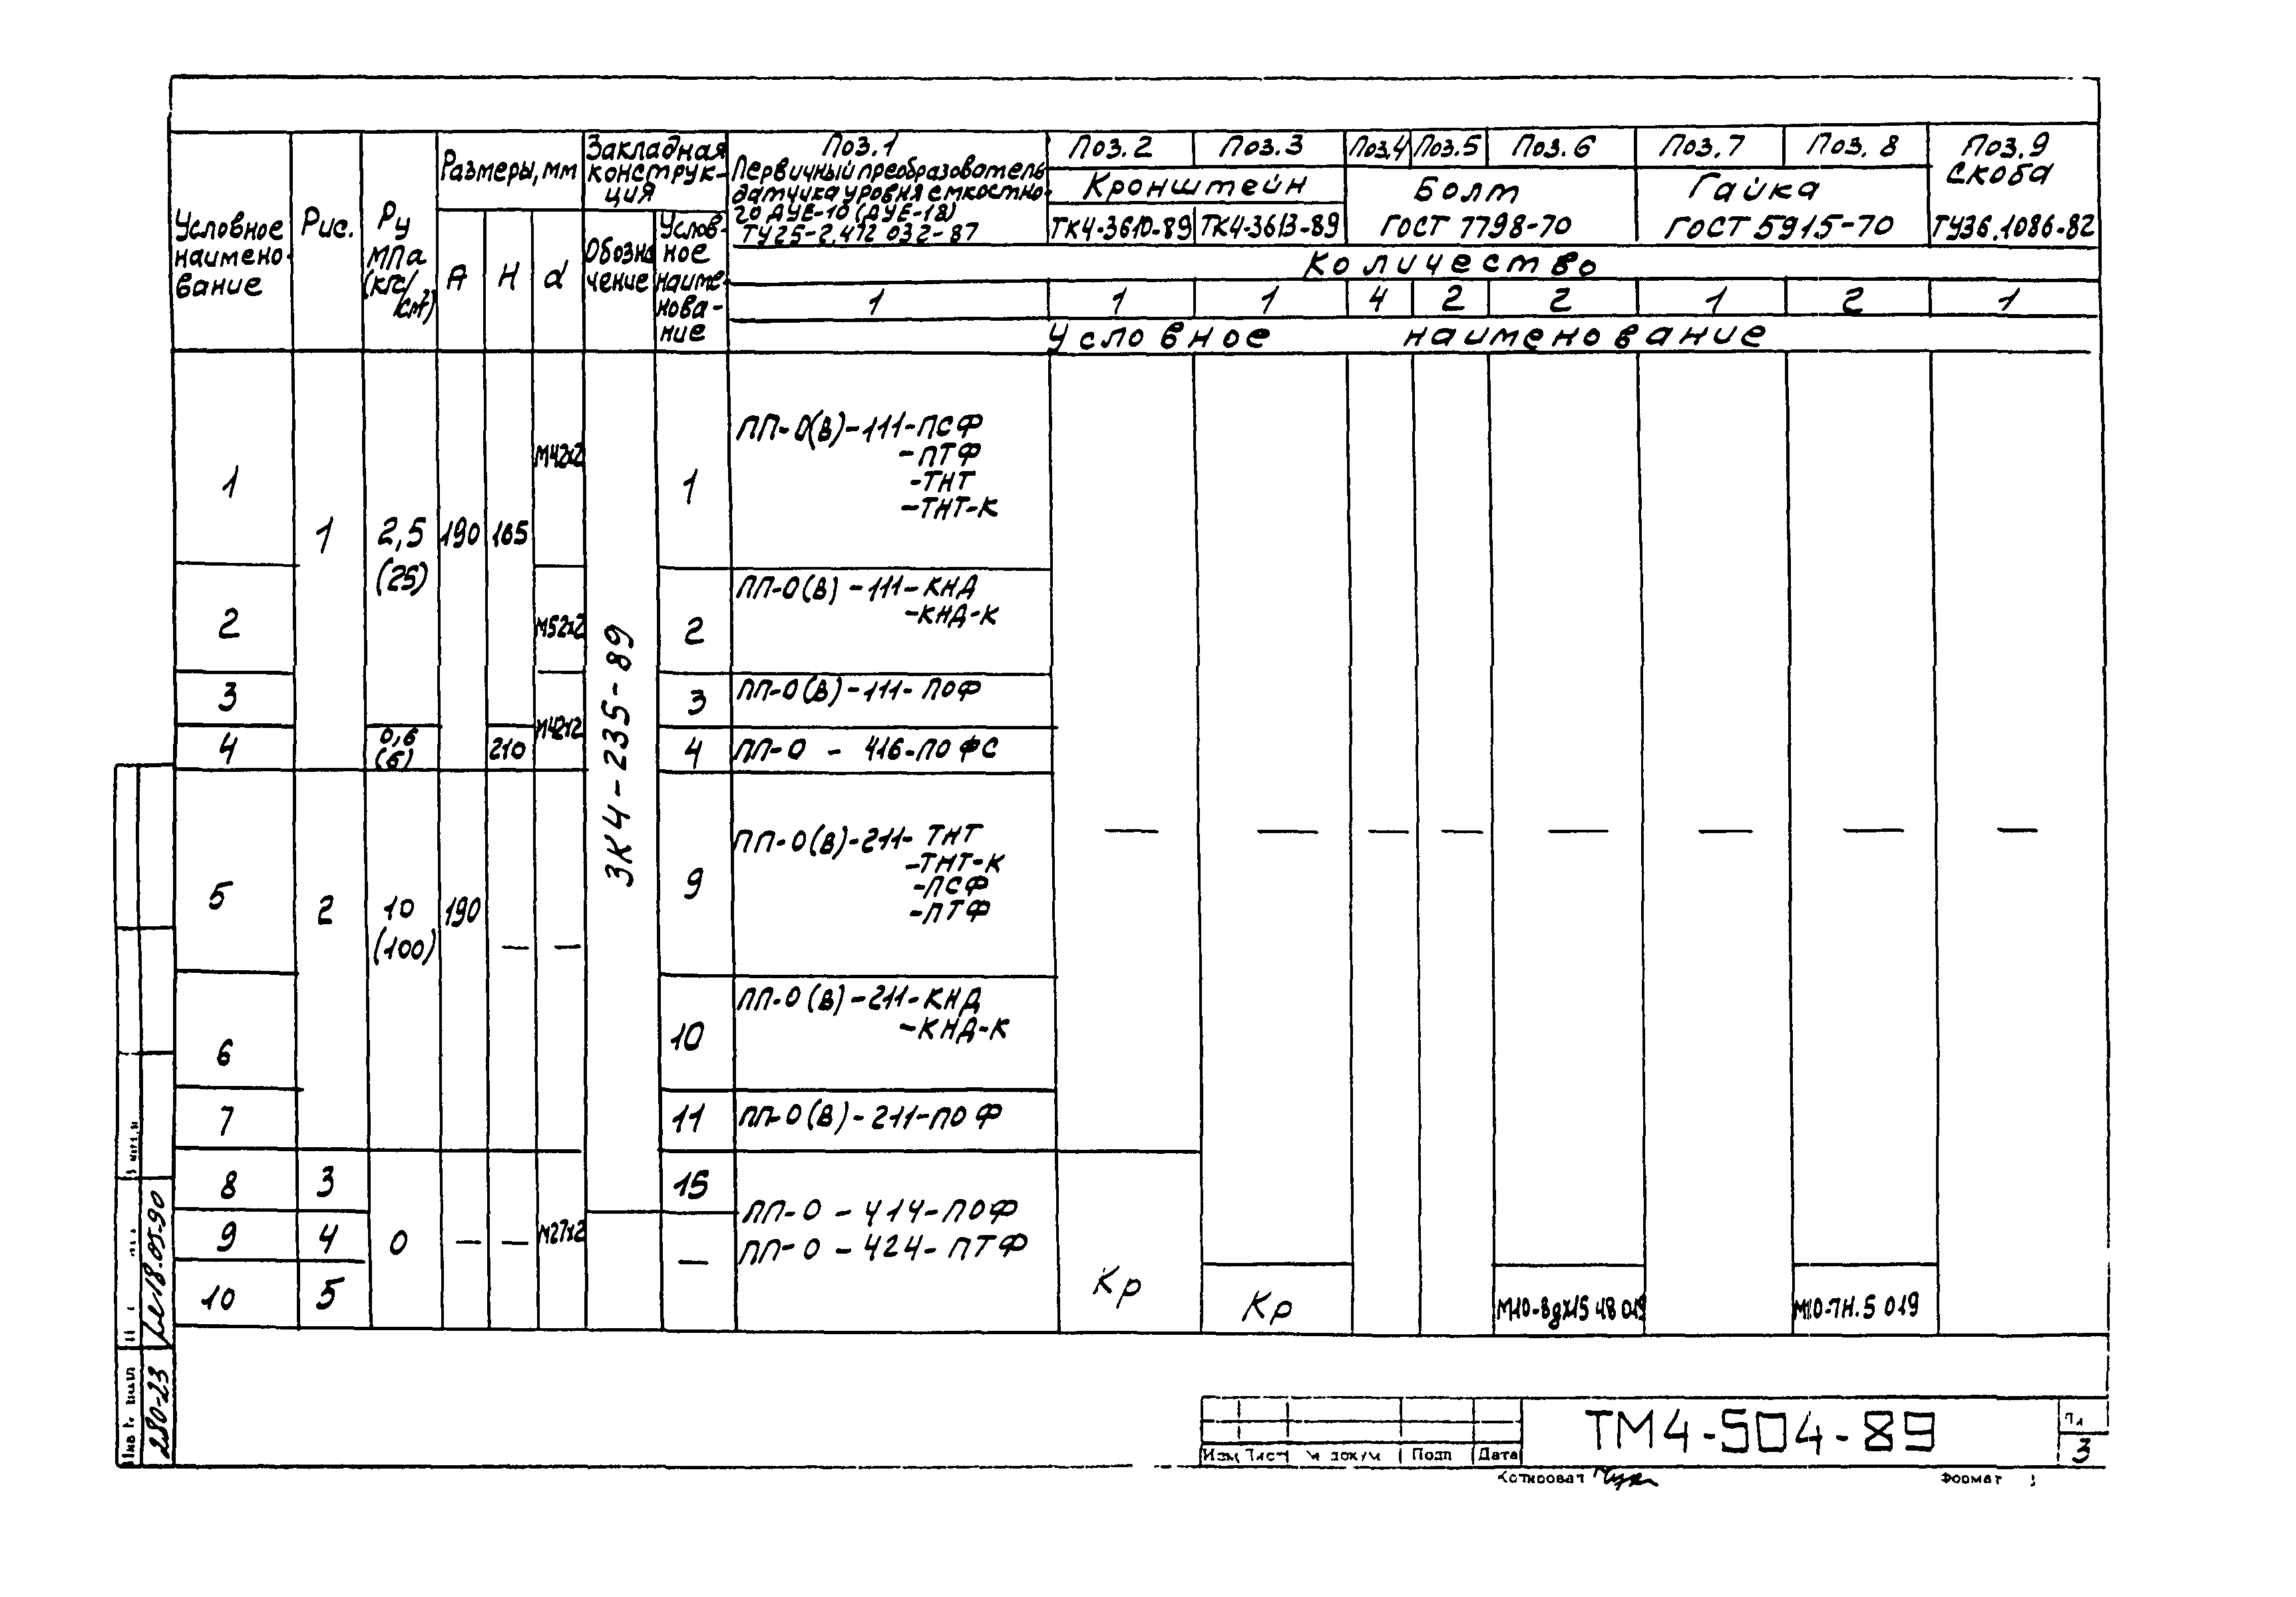 Условное
наимено-
вание
Рис.
Ру
МПа
(кгс/
см²)
Размеры, мм
А
Н
d
Закладная
конструк-
ция
Обозна
чение
Услов-
ное
наиме-
нова-
ние
Поз.1
Первичный преобразователь
датчика уровня емкостно-
го ДУЕ-10 (ДУЕ-1В)
ТУ25-2.472 032-87
Поз.2
Поз.3
Кронштейн
ТК4-3610-89
ТК4-3613-89
Поз.4
Поз.5
Поз.6
Болт
ГОСТ 7798-70
Поз.7
Поз.8
Гайка
ГОСТ 5915-70
Поз.9
Скоба
ТУ36.1086-82
Количество
1 1 1 4 2 2 1 2 1
Условное наименование
1
1
2,5
(25)
190
165
М42х2
ЗК4-235-89
1
ПП-О(В)-111-ПСФ
-ПТФ
-ТНТ
-ТНТ-К
2
М52х2
2
ПП-О(В)-111-КНД
-КНД-К
3
М42х2
3
ПП-О(В)-111-ПОФ
4
0,6
(6)
210
4
ПП-О - 416-ПОФС
5
2
10
(100)
190
— —
9
ПП-О(В)-211-ТНТ
-ТНТ-К
-ПСФ
-ПТФ
— — — — — — — —
6
10
ПП-О(В)-211-КНД
-КНД-К
7
11
ПП-О(В)-211-ПОФ
8
3
15
ПП-О-414-ПОФ
9
4
0
— —
М27х2
—
ПП-О-424-ПТФ
10
5
Кр
Кр
М10-8gх15 48 019
М10-7Н.5 019
280-23
18.05.90
Изм Лист
№ докум
Подп
Дата
ТМ4-504-89
3
Копировал
Формат